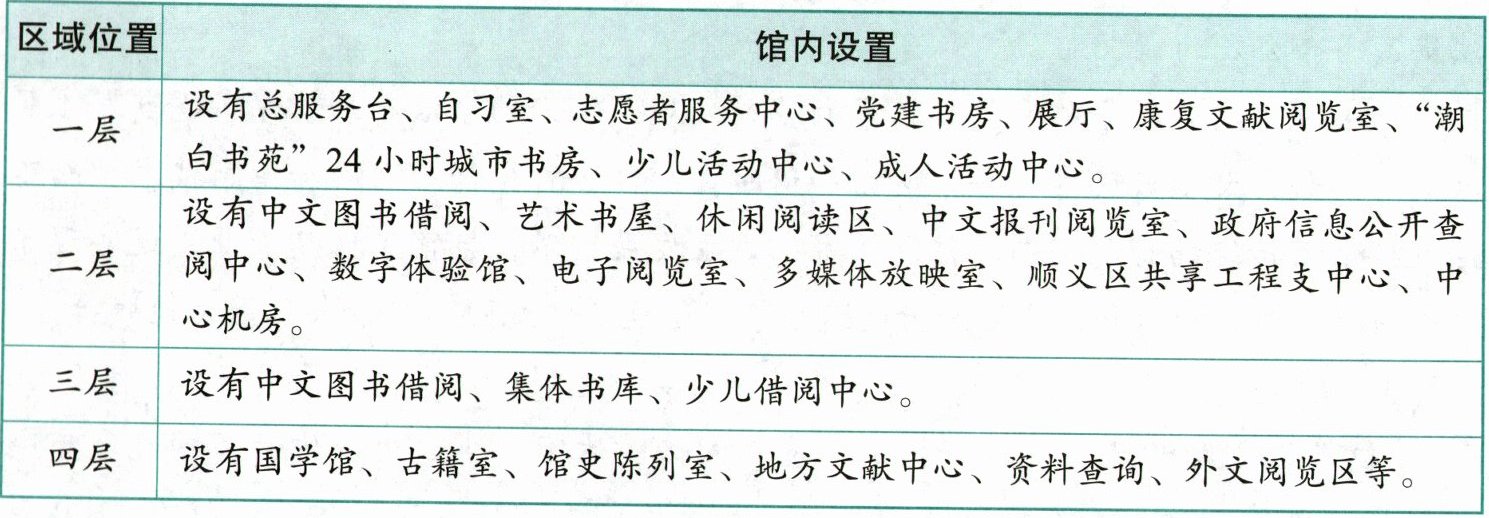 区域位置 馆内设置
一层 设有总服务台、自习室、志愿者服务中心、党建书房、展厅、康复文献阅览室、“潮
白书苑”24 小时城市书房、少儿活动中心、成人活动中心。
二层 设有中文图书借阅、艺术书屋、休闲阅读区、中文报刊阅览室、政府信息公开查
阅中心、数字体验馆、电子阅览室、多媒体放映室、顺义区共享工程支中心、中
心机房。
三层 设有中文图书借阅、集体书库、少儿借阅中心。
四层 设有国学馆、古籍室、馆史陈列室、地方文献中心、资料查询、外文阅览区等。